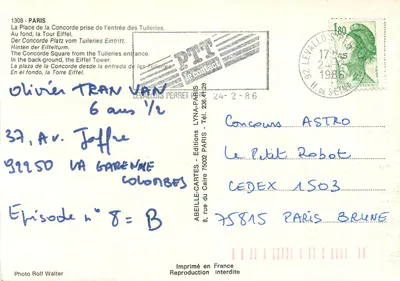 1308 - PARIS
La Place de la Concorde prise de l'entrée des Tuileries.
Au fond, la Tour Eiffel.
Der Concorde Platz vom Tuileries Eintritt.
Hinten der Eiffelturm.
The Concorde Square from the Tuileries entrance.
In the back-ground, the Eiffel Tower.
La plaza de la Concorde desde la entrada de las Tuileries.
En el fondo, la Torre Eiffel.
PTT
24-2-86
1,80
1986
Olivier TRAN VAN
6 ans 1/2
37, Av. Joffre
92250 LA GARENNE
COLOMBES
Episode n° 8 = B
ABEILLE-CARTES - Editions LYNA-PARIS
8, rue du Caire 75002 PARIS - Tél. 236.41.28
Concours ASTRO
Le Petit Robot
CEDEX 1503
75815 PARIS BRUNE
Photo Rolf Walter
Imprimé en France
Reproduction interdite